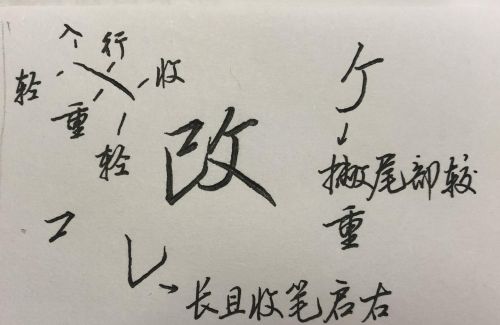 入
行
收
轻
重
轻
改
撇尾部较
重
长且收笔启右